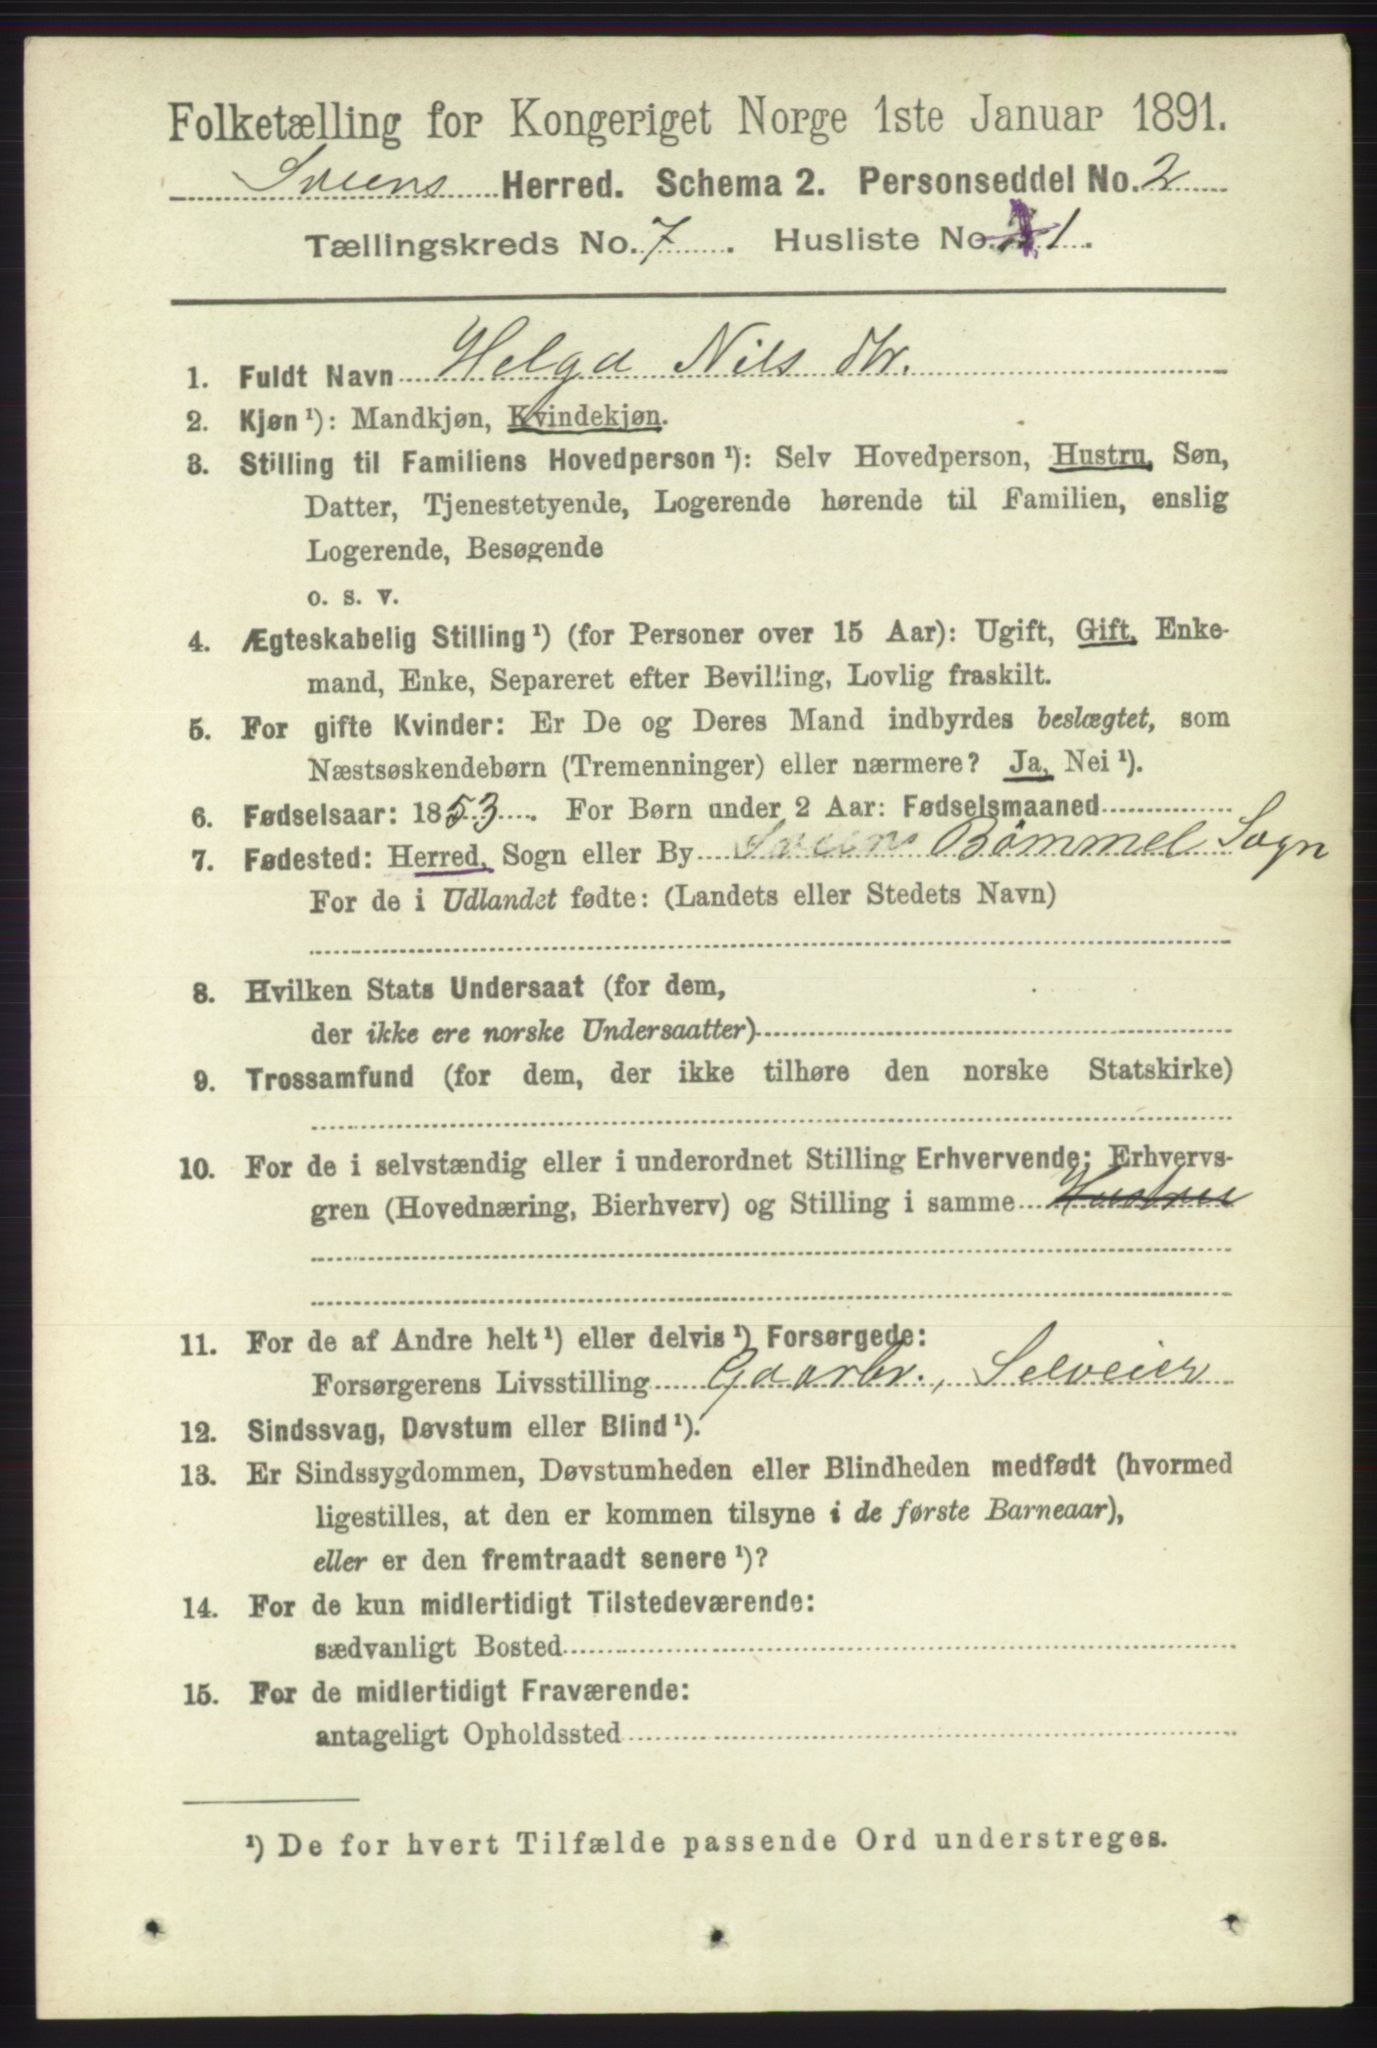 Folketælling for Kongeriget Norge 1ste Januar 1891.
Sveens Herred. Schema 2. Personseddel No. 2
Tællingskreds No. 7. Husliste No. 1.
1. Fuldt Navn Helga Nils dtr.
2. Kjøn¹): Mandkjøn, Kvindekjøn.
3. Stilling til Familiens Hovedperson¹): Selv Hovedperson, Hustru, Søn,
Datter, Tjenestetyende, Logerende hørende til Familien, enslig
Logerende, Besøgende
o. s. v.
4. Ægteskabelig Stilling¹) (for Personer over 15 Aar): Ugift, Gift, Enke-
mand, Enke, Separeret efter Bevilling, Lovlig fraskilt.
5. For gifte Kvinder: Er De og Deres Mand indbyrdes beslægtet, som
Næstsøskendebørn (Tremenninger) eller nærmere? Ja, Nei¹).
6. Fødselsaar: 1853. For Børn under 2 Aar: Fødselsmaaned
7. Fødested: Herred, Sogn eller By Sveen Bømmel Sogn
For de i Udlandet fødte: (Landets eller Stedets Navn)
8. Hvilken Stats Undersaat (for dem,
der ikke ere norske Undersaatter)
9. Trossamfund (for dem, der ikke tilhøre den norske Statskirke)
10. For de i selvstændig eller i underordnet Stilling Erhvervende: Erhvervs-
gren (Hovednæring, Bierhverv) og Stilling i samme Hustru
11. For de af Andre helt¹) eller delvis¹) Forsørgede:
Forsørgerens Livsstilling Gaarbr., Selveier
12. Sindssvag, Døvstum eller Blind¹).
13. Er Sindssygdommen, Døvstumheden eller Blindheden medfødt (hvormed
ligestilles, at den er kommen tilsyne i de første Barneaar),
eller er den fremtraadt senere¹)?
14. For de kun midlertidigt Tilstedeværende:
sædvanligt Bosted
15. For de midlertidigt Fraværende:
antageligt Opholdssted
¹) De for hvert Tilfælde passende Ord understreges.